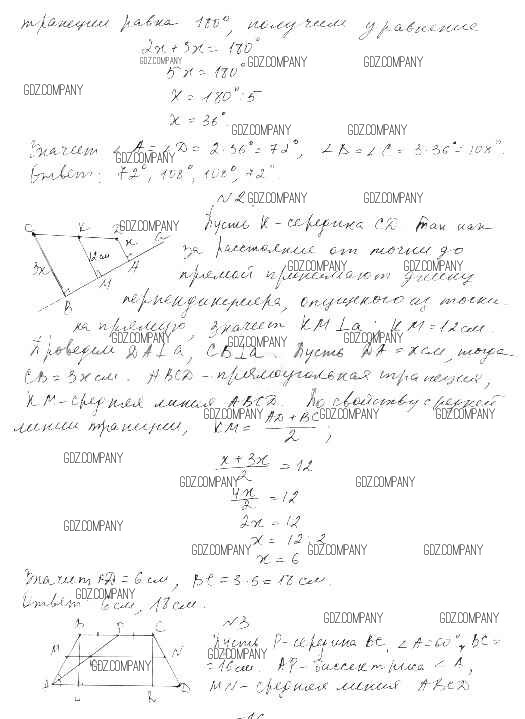 трапеции равна 180°, получим уравнение
2x + 3x = 180°
GDZ.COMPANY GDZ.COMPANY GDZ.COMPANY
5x = 180°
GDZ.COMPANY
x = 180° : 5
x = 36°
GDZ.COMPANY GDZ.COMPANY
Значит ∠A = ∠D = 2·36° = 72°, ∠B = ∠C = 3·36° = 108°.
GDZ.COMPANY
Ответ: 72°, 108°, 108°, 72°.
N2. GDZ.COMPANY GDZ.COMPANY
Пусть K - середина CD. Так как
GDZ.COMPANY
за расстояние от точки до
прямой принимают длину
GDZ.COMPANY GDZ.COMPANY
перпендикуляра, опущенного из точки
на прямую, значит KM⊥a, KM = 12 см.
GDZ.COMPANY GDZ.COMPANY GDZ.COMPANY
Проведем DA⊥a, CB⊥a. Пусть DA = x см, тогда
CB = 3x см. ABCD - прямоугольная трапеция,
KM - средняя линия ABCD. По свойству средней
GDZ.COMPANY GDZ.COMPANY GDZ.COMPANY
линии трапеции, KM = (AD + BC)/2;
GDZ.COMPANY
(x + 3x)/2 = 12
GDZ.COMPANY GDZ.COMPANY
4x/2 = 12
2x = 12
GDZ.COMPANY
x = 12 : 2
GDZ.COMPANY GDZ.COMPANY GDZ.COMPANY
x = 6
Значит AD = 6 см, BC = 3·6 = 18 см.
GDZ.COMPANY
Ответ: 6 см, 18 см.
N3 GDZ.COMPANY GDZ.COMPANY
Пусть P - середина BC, ∠A = 60°, BC =
GDZ.COMPANY
= 16 см. AP - биссектриса ∠A,
GDZ.COMPANY
MN - средняя линия ABCD